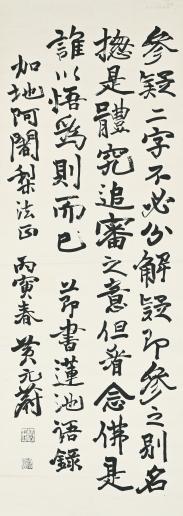 參疑二字不必分解疑即參之別名
揔是體究追審之意但看念佛是
誰以悟爲則而已　節書蓮池语錄
加地阿闍梨法正　丙寅春　黄元蔚